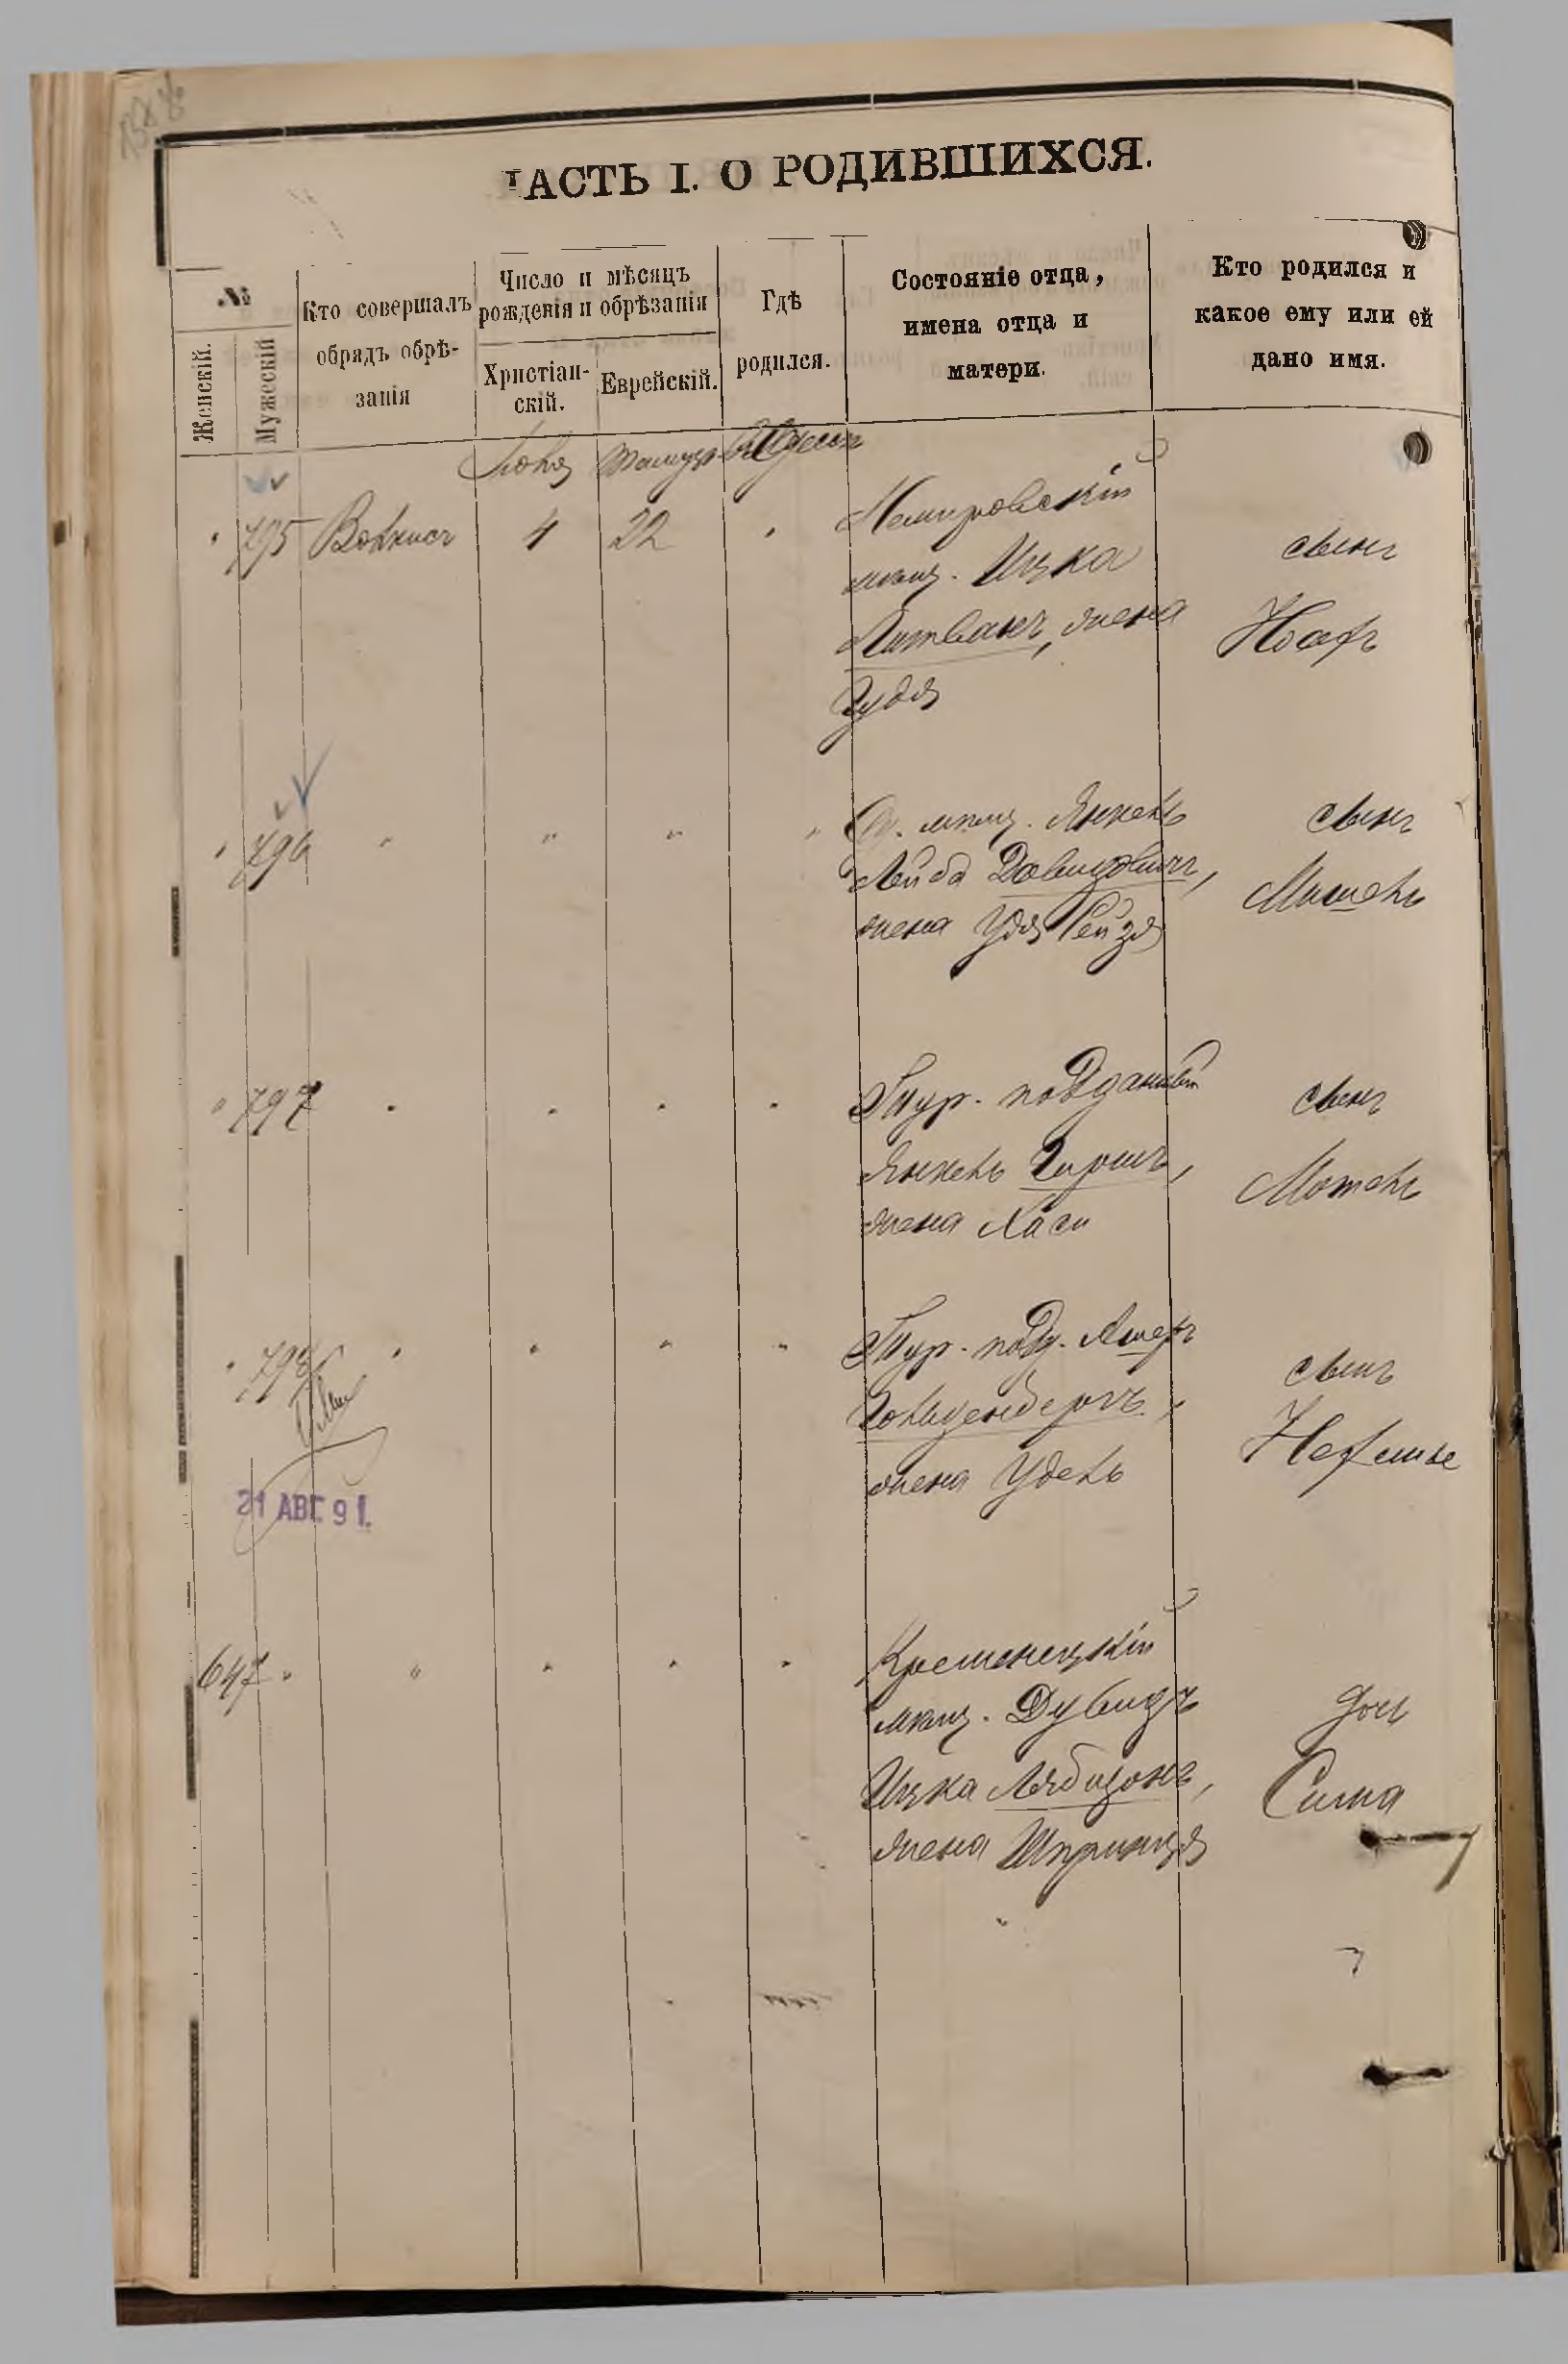 ЧАСТЬ I. О РОДИВШИХСЯ.
№
Женскій.
Мужескій
Кто совершалъ
обрядъ обрѣ-
занія
Число и мѣсяцъ
рожденія и обрѣзанія
Христіан-
скій.
Еврейскій.
Гдѣ
родился.
Состояніе отца,
имена отца и
матери.
Кто родился и
какое ему или ей
дано имя.
Іюля Тамузъ въ Одессѣ
795 4 22
Немировскій
мѣщ. Ицка
Литванъ, жена
сынъ
796 " " " "
Од. мѣщ. Янкель
Лейба Давидовичъ,
жена Удя Рейзя
сынъ
Мишель
" 797 " " " "
Тур. подданный
Янкель Гиршъ,
жена Хася
сынъ
Мотель
" 798 " " " "
Тур. подд. Ашеръ
Гольденбергъ,
жена Удель
сынъ
21 АВГ. 91.
647 " " " " "
Кременецкій
мѣщ. Дувидъ
Ицка
жена Шпринця
дочь
Сима